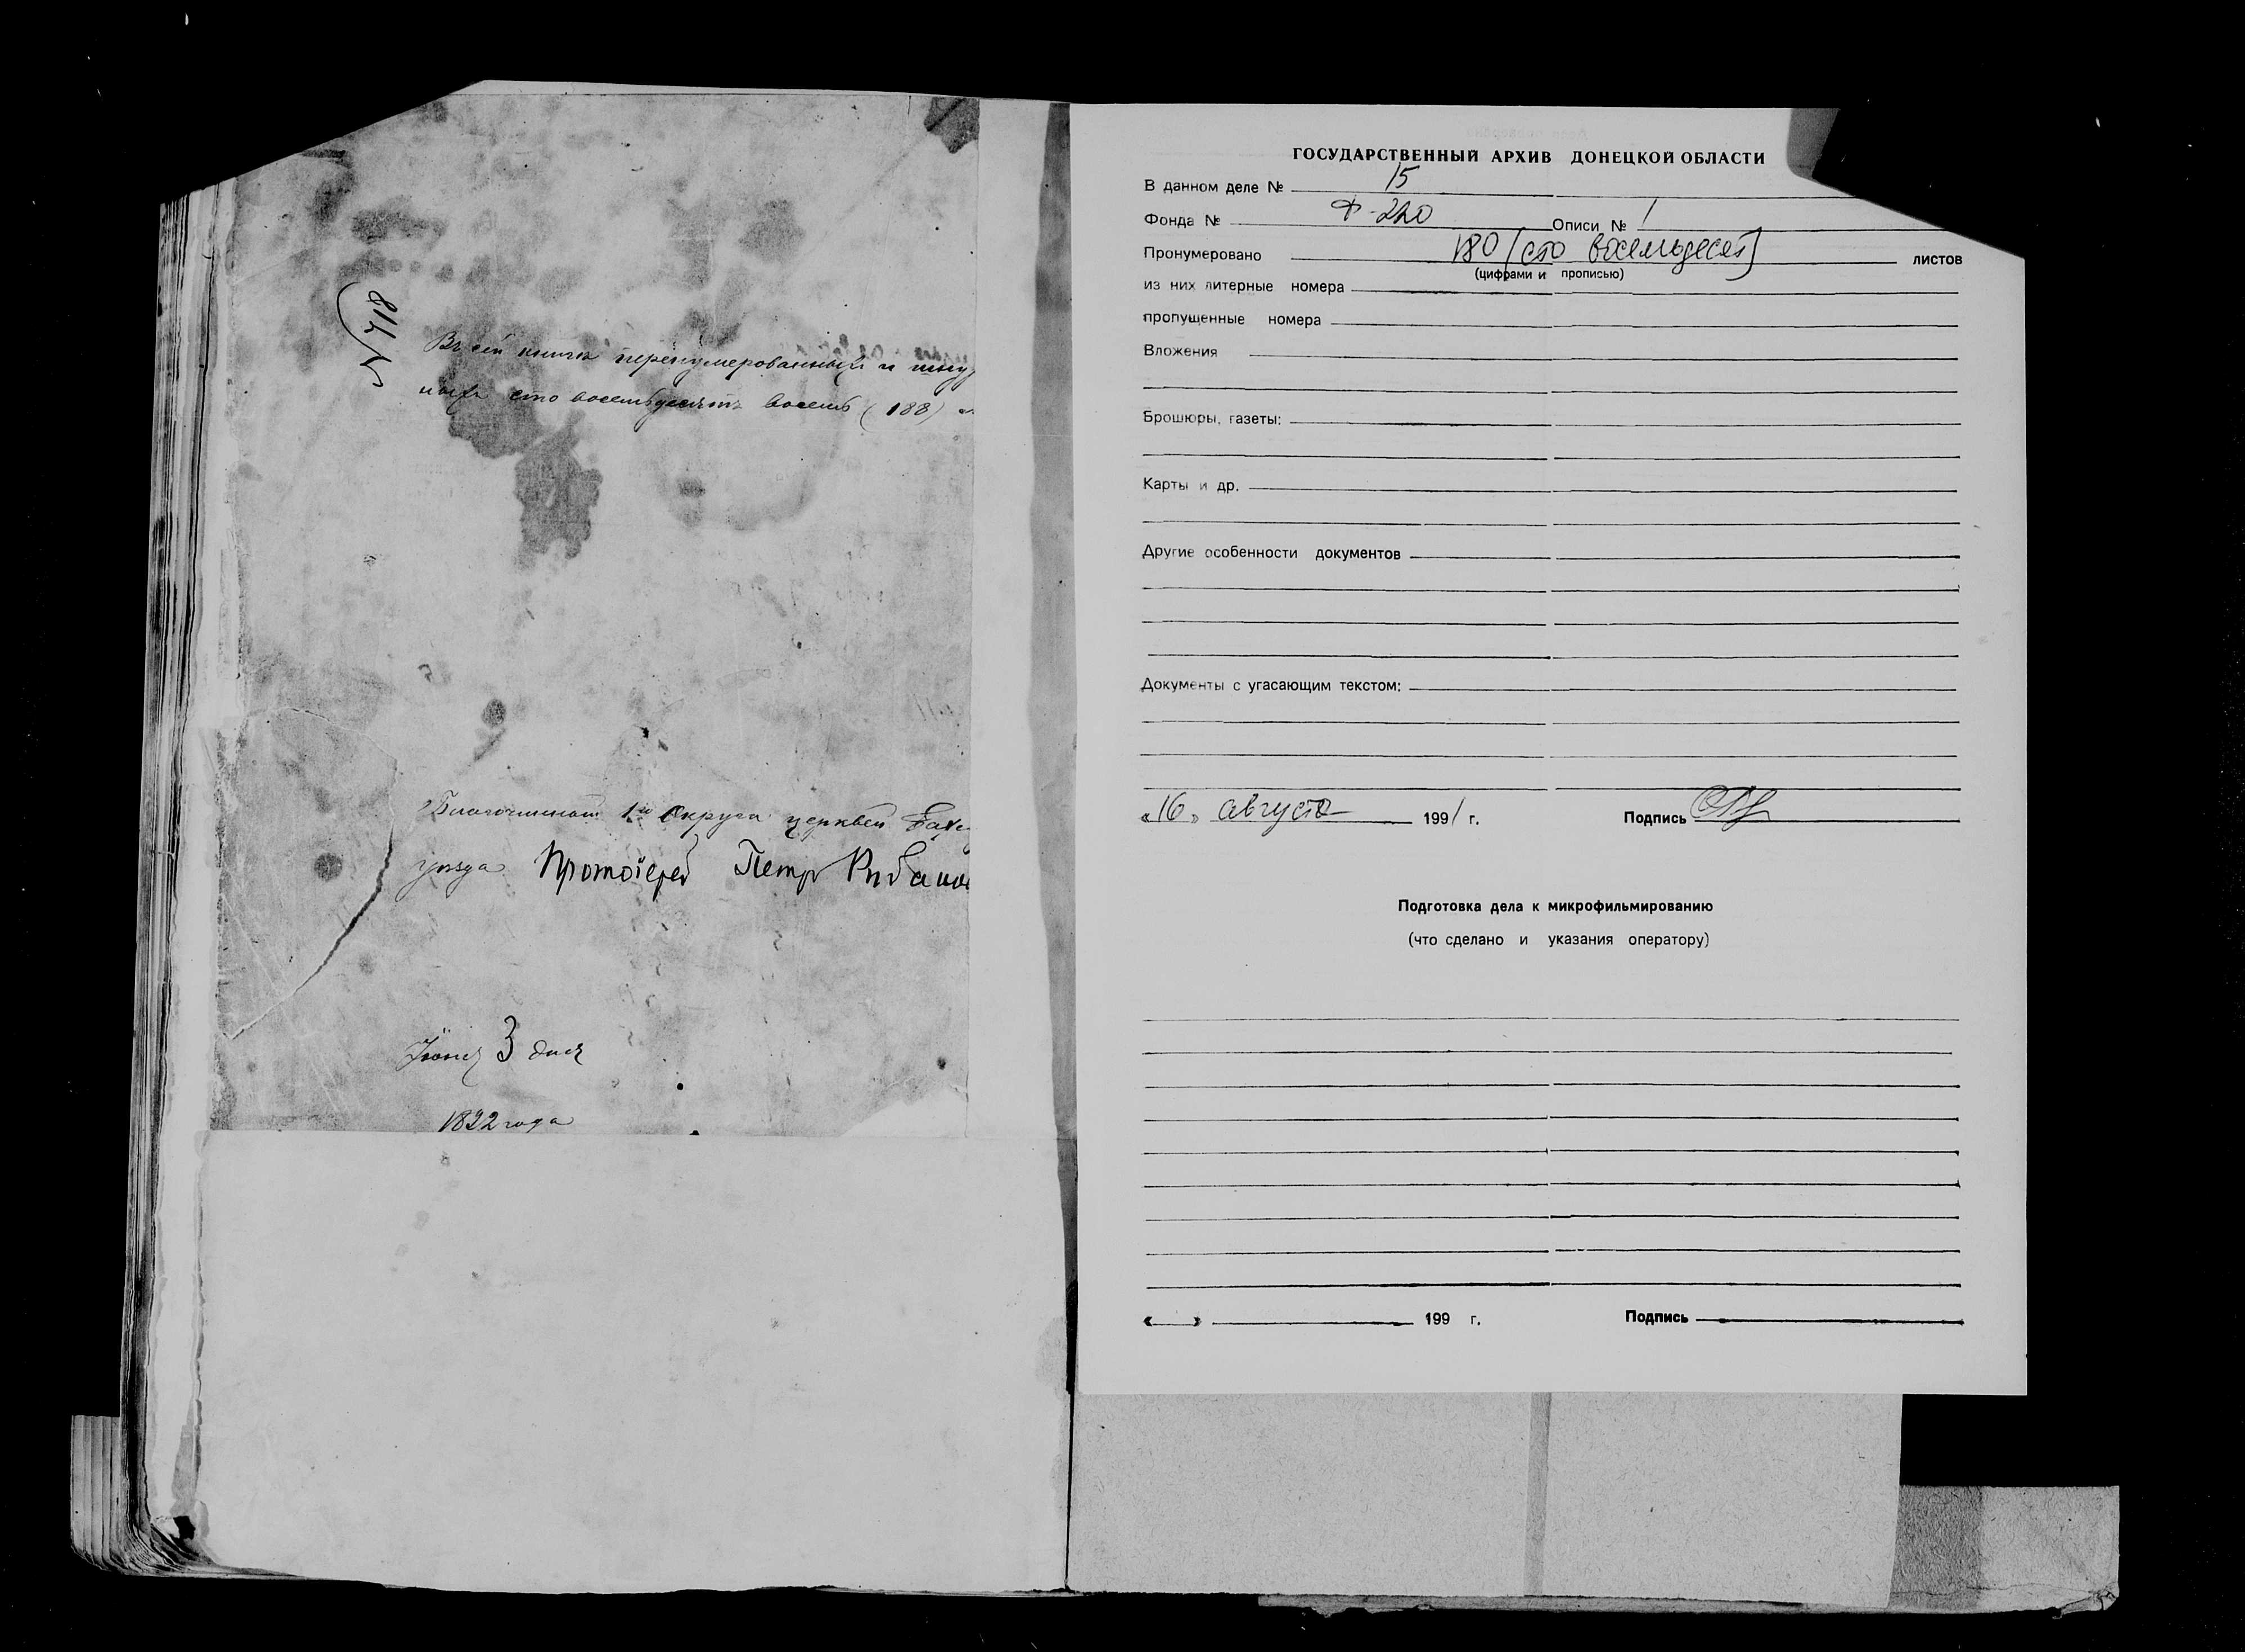 № 718
Въ сей книгѣ перенумерованныхъ и шну
ныхъ сто восемьдесятъ восемь (188)
Благочинный 1го Округа церквей Бахм
уѣзда Протоіерей Петръ
Іюня 3 дня
1822 года
ГОСУДАРСТВЕННЫЙ АРХИВ ДОНЕЦКОЙ ОБЛАСТИ
В данном деле № 15
Фонда № Ф-220 Описи № 1
Пронумеровано 180 (сто восемьдесят) листов
(цифрами и прописью)
из них литерные номера
пропущенные номера
Вложения
Брошюры, газеты:
Карты и др.
Другие особенности документов
Документы с угасающим текстом:
«16» августа 1991 г. Подпись
Подготовка дела к микрофильмированию
(что сделано и указания оператору)
« » 199 г. Подпись